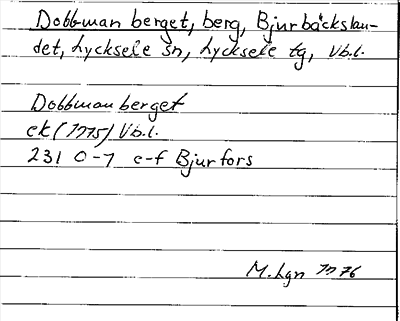 Dobbman berget, berg, Bjurbäckslan-
det, Lycksele sn, Lycksele tg, Vb.l.
Dobbman berget
ek (1975) Vb.l.
231 0-1 e-f Bjurfors
M. Lgn 1976